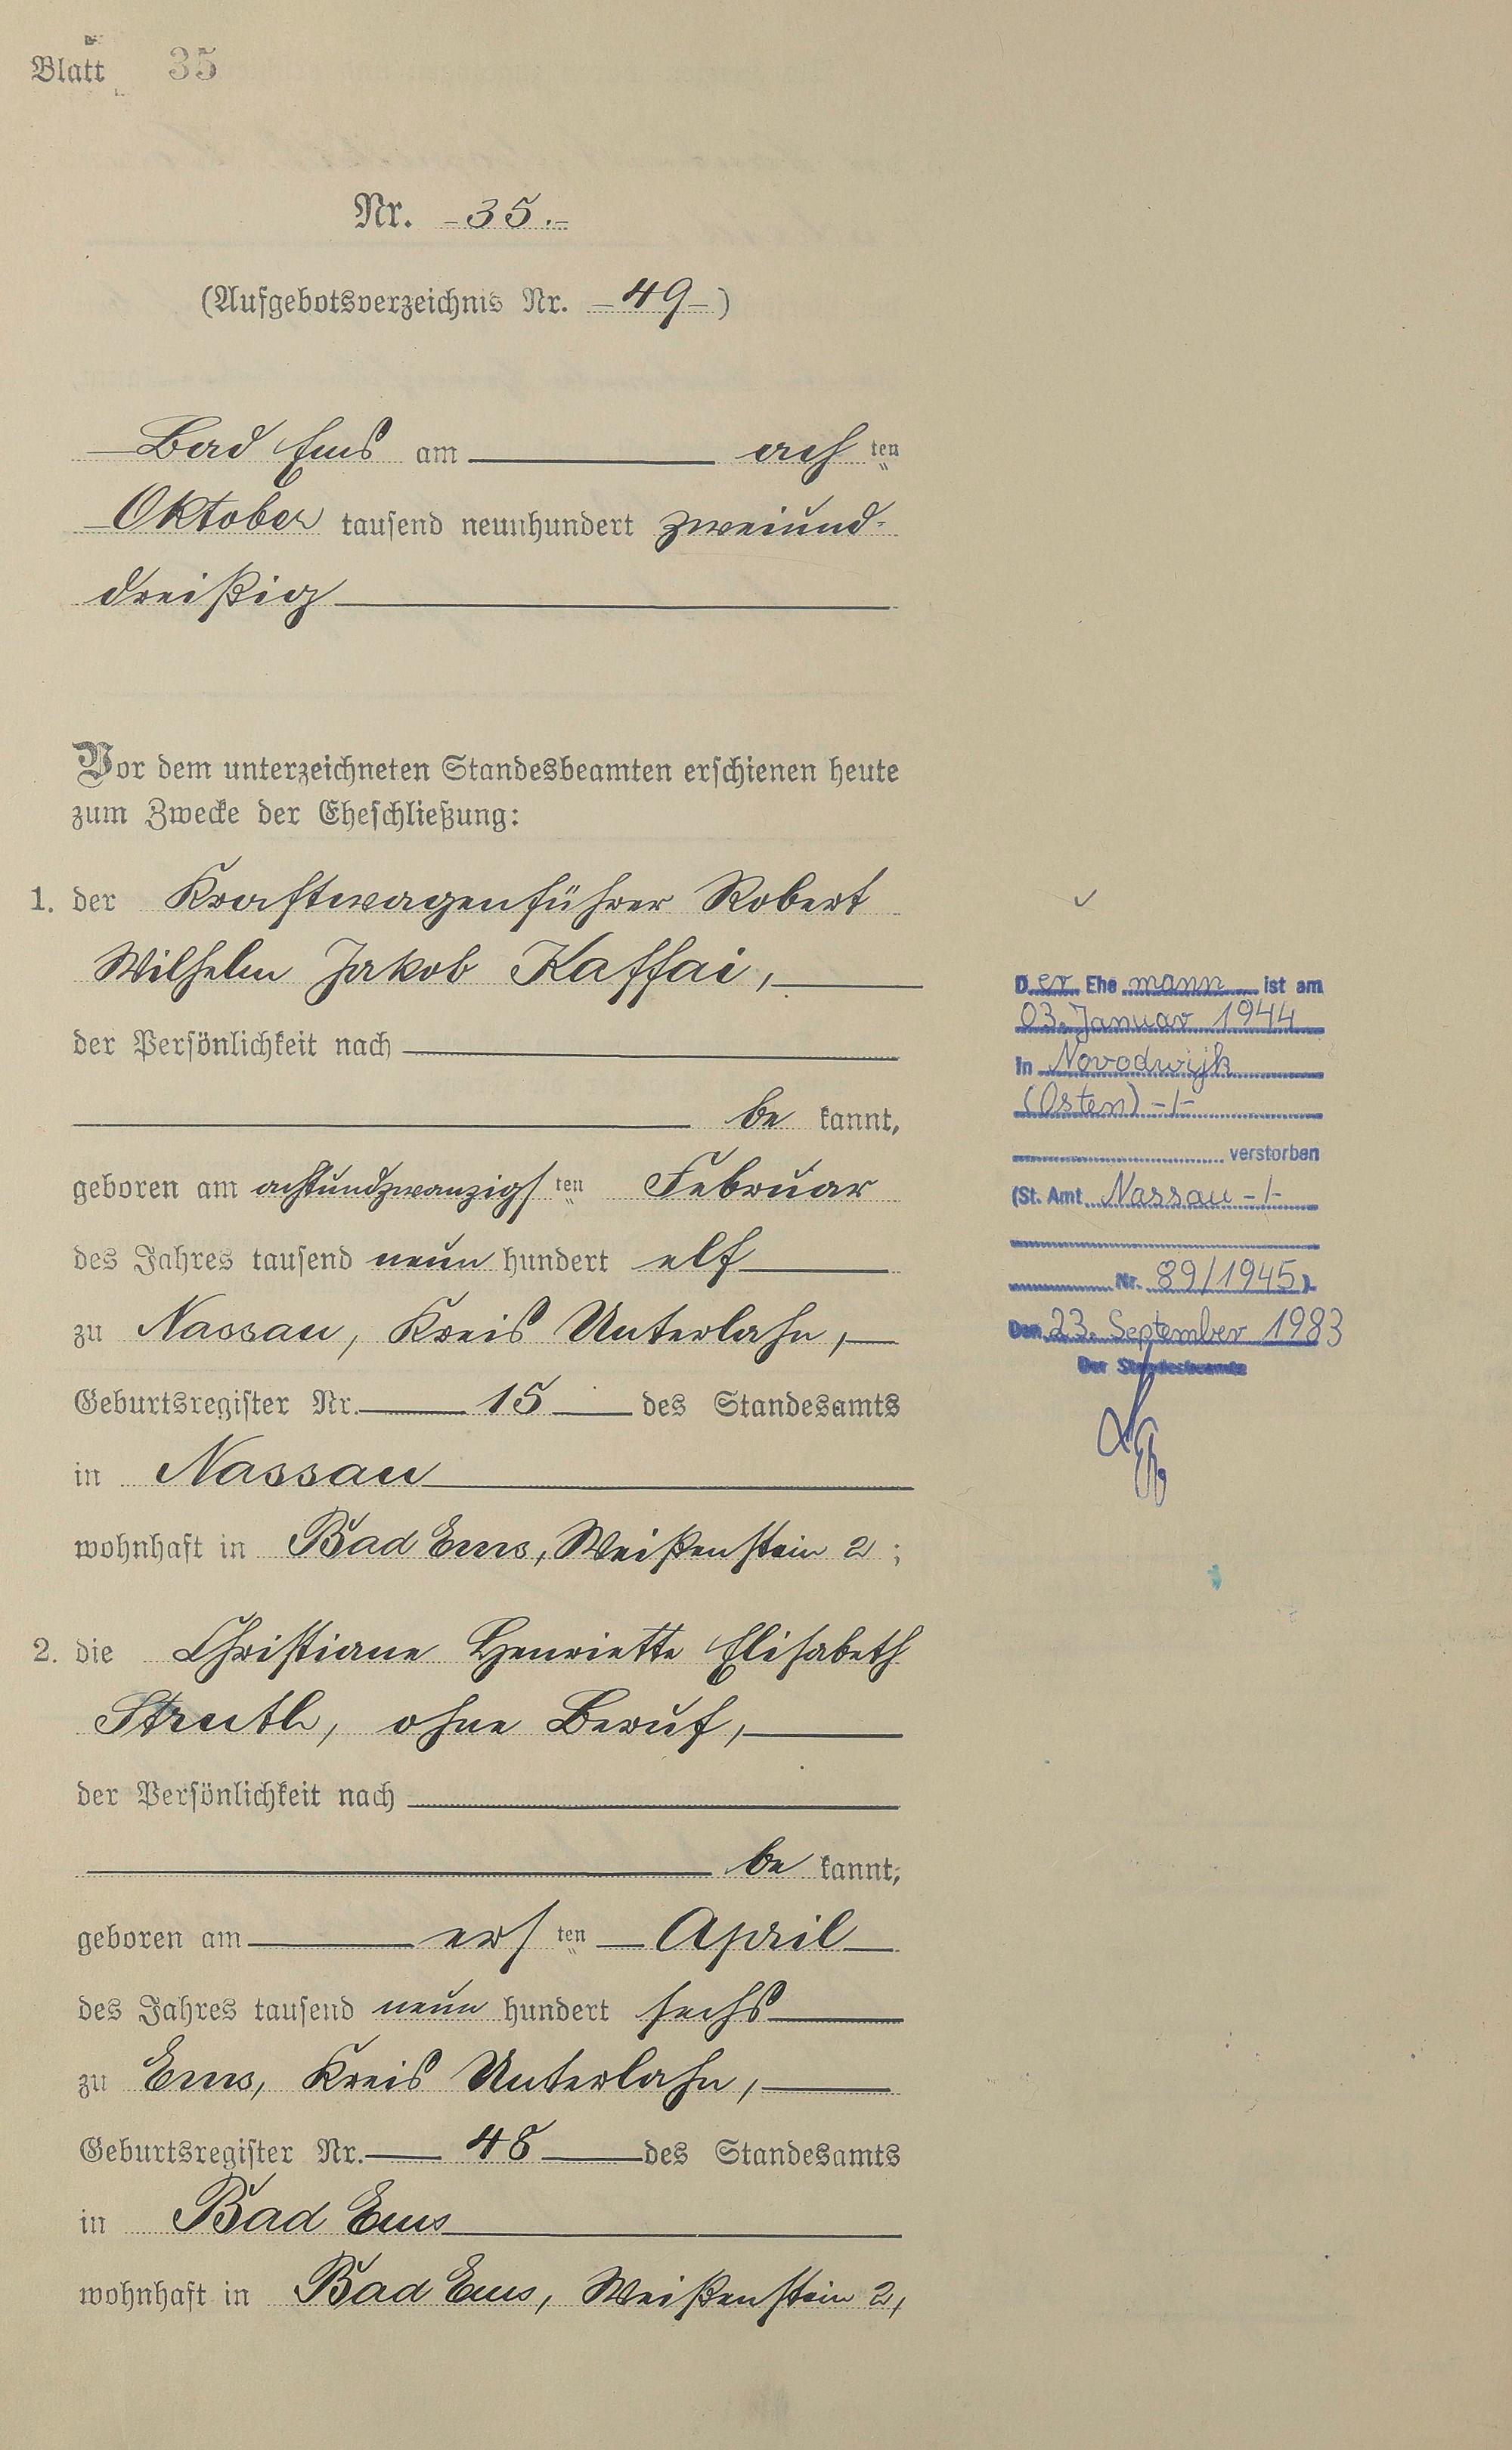 Blatt 35
Nr. -35.-
(Aufgebotsverzeichnis Nr. -49-)
Bad Ems am ach ten
Oktober tausend neunhundert zweiund-
dreißig
Vor dem unterzeichneten Standesbeamten erschienen heute
zum Zwecke der Eheschließung:
1. der Kraftwagenführer Robert
Wilhelm Jakob Kaffai,
der Persönlichkeit nach
be kannt,
geboren am achtundzwanzigs ten Februar
des Jahres tausend neun hundert elf
zu Nassau, Kreis Unterlahn,
Geburtsregister Nr. 15 des Standesamts
in Nassau
wohnhaft in Bad Ems, Weißenstein 2;
2. die Christiane Henriette Elisabeth
Struth, ohne Beruf,
der Persönlichkeit nach
be kannt,
geboren am ers ten April
des Jahres tausend neun hundert sechs
zu Ems, Kreis Unterlahn,
Geburtsregister Nr. 48 des Standesamts
in Bad Ems
wohnhaft in Bad Ems, Weißenstein 2,
Der Ehe mann ist am
03. Januar 1944
in Novodwijk
(Osten) -/-
verstorben
(St. Amt Nassau -/-
Nr. 89/1945).
Den 23. September 1983
Der Standesbeamte